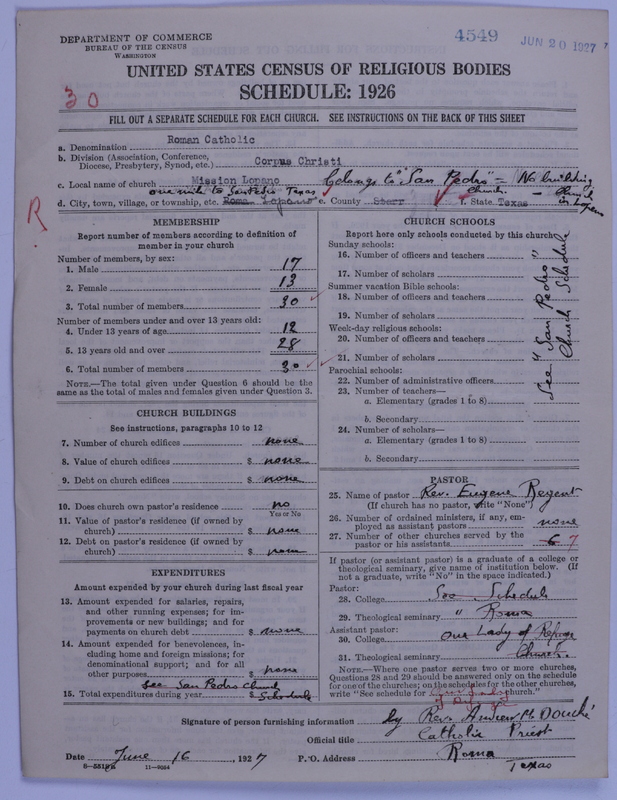 DEPARTMENT OF COMMERCE
BUREAU OF THE CENSUS
WASHINGTON
4549
JUN 20 1927
UNITED STATES CENSUS OF RELIGIOUS BODIES
SCHEDULE: 1926
30
FILL OUT A SEPARATE SCHEDULE FOR EACH CHURCH. SEE INSTRUCTIONS ON THE BACK OF THIS SHEET
a. Denomination Roman Catholic
b. Division (Association, Conference,
Diocese, Presbytery, Synod, etc.) Corpus Christi
c. Local name of church Mission Lopano belongs to "San Pedro" = No building
one mile to San Pedro Texas church. — Church
d. City, town, village, or township, etc. Roma Lopano e. County Starr f. State Texas in Lopano
R
MEMBERSHIP
Report number of members according to definition of
member in your church
Number of members, by sex:
1. Male 17
2. Female 13
3. Total number of members 30
Number of members under and over 13 years old:
4. Under 13 years of age 12
5. 13 years old and over 28
6. Total number of members 30
NOTE.—The total given under Question 6 should be the
same as the total of males and females given under Question 3.
CHURCH BUILDINGS
See instructions, paragraphs 10 to 12
7. Number of church edifices none
8. Value of church edifices $ none
9. Debt on church edifices $ none
10. Does church own pastor's residence no
Yes or No
11. Value of pastor's residence (if owned by
church) $ none
12. Debt on pastor's residence (if owned by
church) $ none
EXPENDITURES
Amount expended by your church during last fiscal year
13. Amount expended for salaries, repairs,
and other running expenses; for im-
provements or new buildings; and for
payments on church debt $ none
14. Amount expended for benevolences, in-
cluding home and foreign missions; for
denominational support; and for all
other purposes $ none
See San Pedro Church
15. Total expenditures during year $ Schedule
CHURCH SCHOOLS
Report here only schools conducted by this church
Sunday schools:
16. Number of officers and teachers
17. Number of scholars
Summer vacation Bible schools:
18. Number of officers and teachers
19. Number of scholars
Week-day religious schools:
20. Number of officers and teachers
21. Number of scholars
Parochial schools:
22. Number of administrative officers
23. Number of teachers—
a. Elementary (grades 1 to 8)
b. Secondary
24. Number of scholars—
a. Elementary (grades 1 to 8)
b. Secondary
See "San Pedro"
Church Schedule
PASTOR
25. Name of pastor Rev. Eugene Regent
(If church has no pastor, write "None")
26. Number of ordained ministers, if any, em-
ployed as assistant pastors none
27. Number of other churches served by the
pastor or his assistants 6 7
If pastor (or assistant pastor) is a graduate of a college or
theological seminary, give name of institution below. (If
not a graduate, write "No" in the space indicated.)
Pastor:
28. College See Schedule
29. Theological seminary " Roma
Assistant pastor:
30. College our Lady of Refuge
31. Theological seminary Church.
NOTE.—Where one pastor serves two or more churches,
Questions 28 and 29 should be answered only on the schedule
for one of the churches; on the schedules for the other churches,
write "See schedule for church."
Signature of person furnishing information by Rev. Andrew M. Douché
Official title Catholic Priest
Date June 16, 1927 P. O. Address Roma
Texas
11—9034